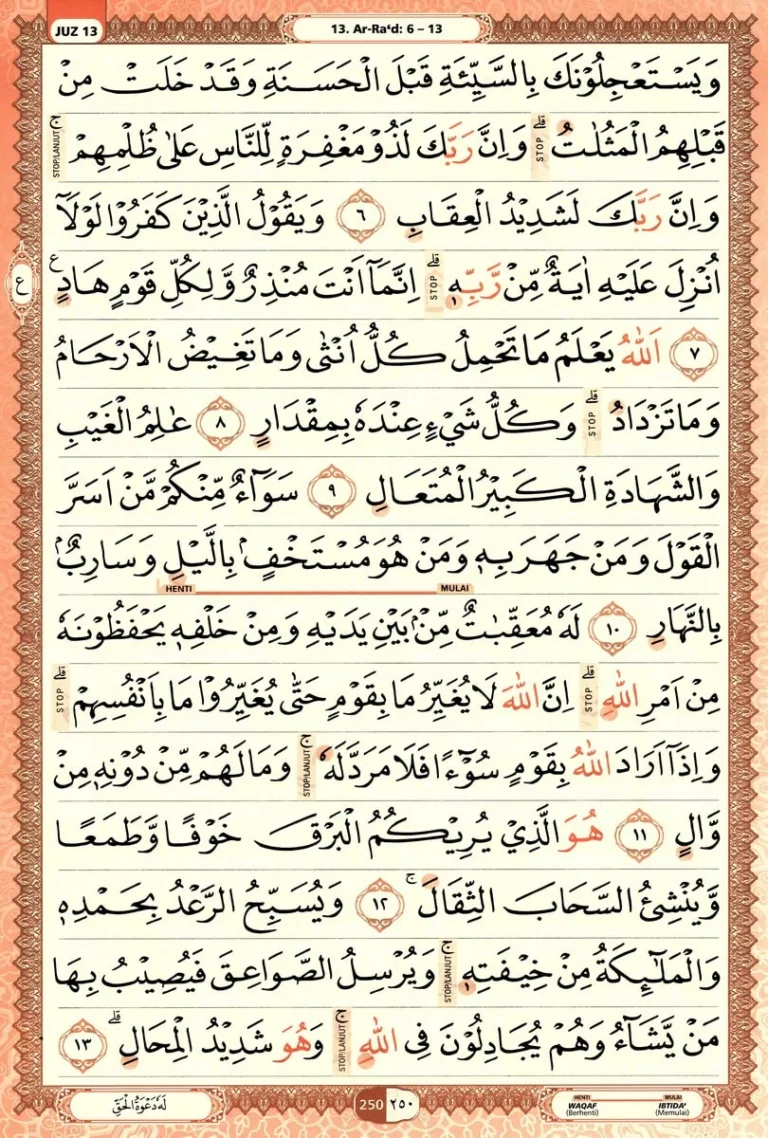 JUZ 13
13. Ar-Ra‘d: 6 – 13
وَيَسْتَعْجِلُوْنَكَ بِالسَّيِّئَةِ قَبْلَ الْحَسَنَةِ وَقَدْ خَلَتْ مِنْ
قَبْلِهِمُ الْمَثُلٰتُۗ STOP وَاِنَّ رَبَّكَ لَذُوْ مَغْفِرَةٍ لِّلنَّاسِ عَلٰى ظُلْمِهِمْۚ STOP/LANJUT
وَاِنَّ رَبَّكَ لَشَدِيْدُ الْعِقَابِ ٦ وَيَقُوْلُ الَّذِيْنَ كَفَرُوْا لَوْلَآ
ع
اُنْزِلَ عَلَيْهِ اٰيَةٌ مِّنْ رَّبِّهٖۗ STOP اِنَّمَآ اَنْتَ مُنْذِرٌ وَّلِكُلِّ قَوْمٍ هَادٍ ࣖ
٧ اَللّٰهُ يَعْلَمُ مَا تَحْمِلُ كُلُّ اُنْثٰى وَمَا تَغِيْضُ الْاَرْحَامُ
وَمَا تَزْدَادُۗ STOP وَكُلُّ شَيْءٍ عِنْدَهٗ بِمِقْدَارٍ ٨ عٰلِمُ الْغَيْبِ
وَالشَّهَادَةِ الْكَبِيْرُ الْمُتَعَالِ ٩ سَوَاۤءٌ مِّنْكُمْ مَّنْ اَسَرَّ
الْقَوْلَ وَمَنْ جَهَرَ بِهٖ وَمَنْ هُوَ مُسْتَخْفٍۢ بِالَّيْلِ وَسَارِبٌۢ
HENTI MULAI
بِالنَّهَارِ ١٠ لَهٗ مُعَقِّبٰتٌ مِّنْۢ بَيْنِ يَدَيْهِ وَمِنْ خَلْفِهٖ يَحْفَظُوْنَهٗ
مِنْ اَمْرِ اللّٰهِۗ STOP اِنَّ اللّٰهَ لَا يُغَيِّرُ مَا بِقَوْمٍ حَتّٰى يُغَيِّرُوْا مَا بِاَنْفُسِهِمْۗ STOP
وَاِذَآ اَرَادَ اللّٰهُ بِقَوْمٍ سُوْۤءًا فَلَا مَرَدَّ لَهٗۚ STOP/LANJUT وَمَا لَهُمْ مِّنْ دُوْنِهٖ مِنْ
وَّالٍ ١١ هُوَ الَّذِيْ يُرِيْكُمُ الْبَرْقَ خَوْفًا وَّطَمَعًا
وَّيُنْشِئُ السَّحَابَ الثِّقَالَۚ ١٢ وَيُسَبِّحُ الرَّعْدُ بِحَمْدِهٖ
وَالْمَلٰۤىِٕكَةُ مِنْ خِيْفَتِهٖۚ STOP/LANJUT وَيُرْسِلُ الصَّوَاعِقَ فَيُصِيْبُ بِهَا
مَنْ يَّشَاۤءُ وَهُمْ يُجَادِلُوْنَ فِى اللّٰهِۚ STOP/LANJUT وَهُوَ شَدِيْدُ الْمِحَالِۗ ١٣
لَهٗ دَعْوَةُ الْحَقِّ
250 ٢٥٠
HENTI MULAI
WAQAF IBTIDA'
(Berhenti) (Memulai)